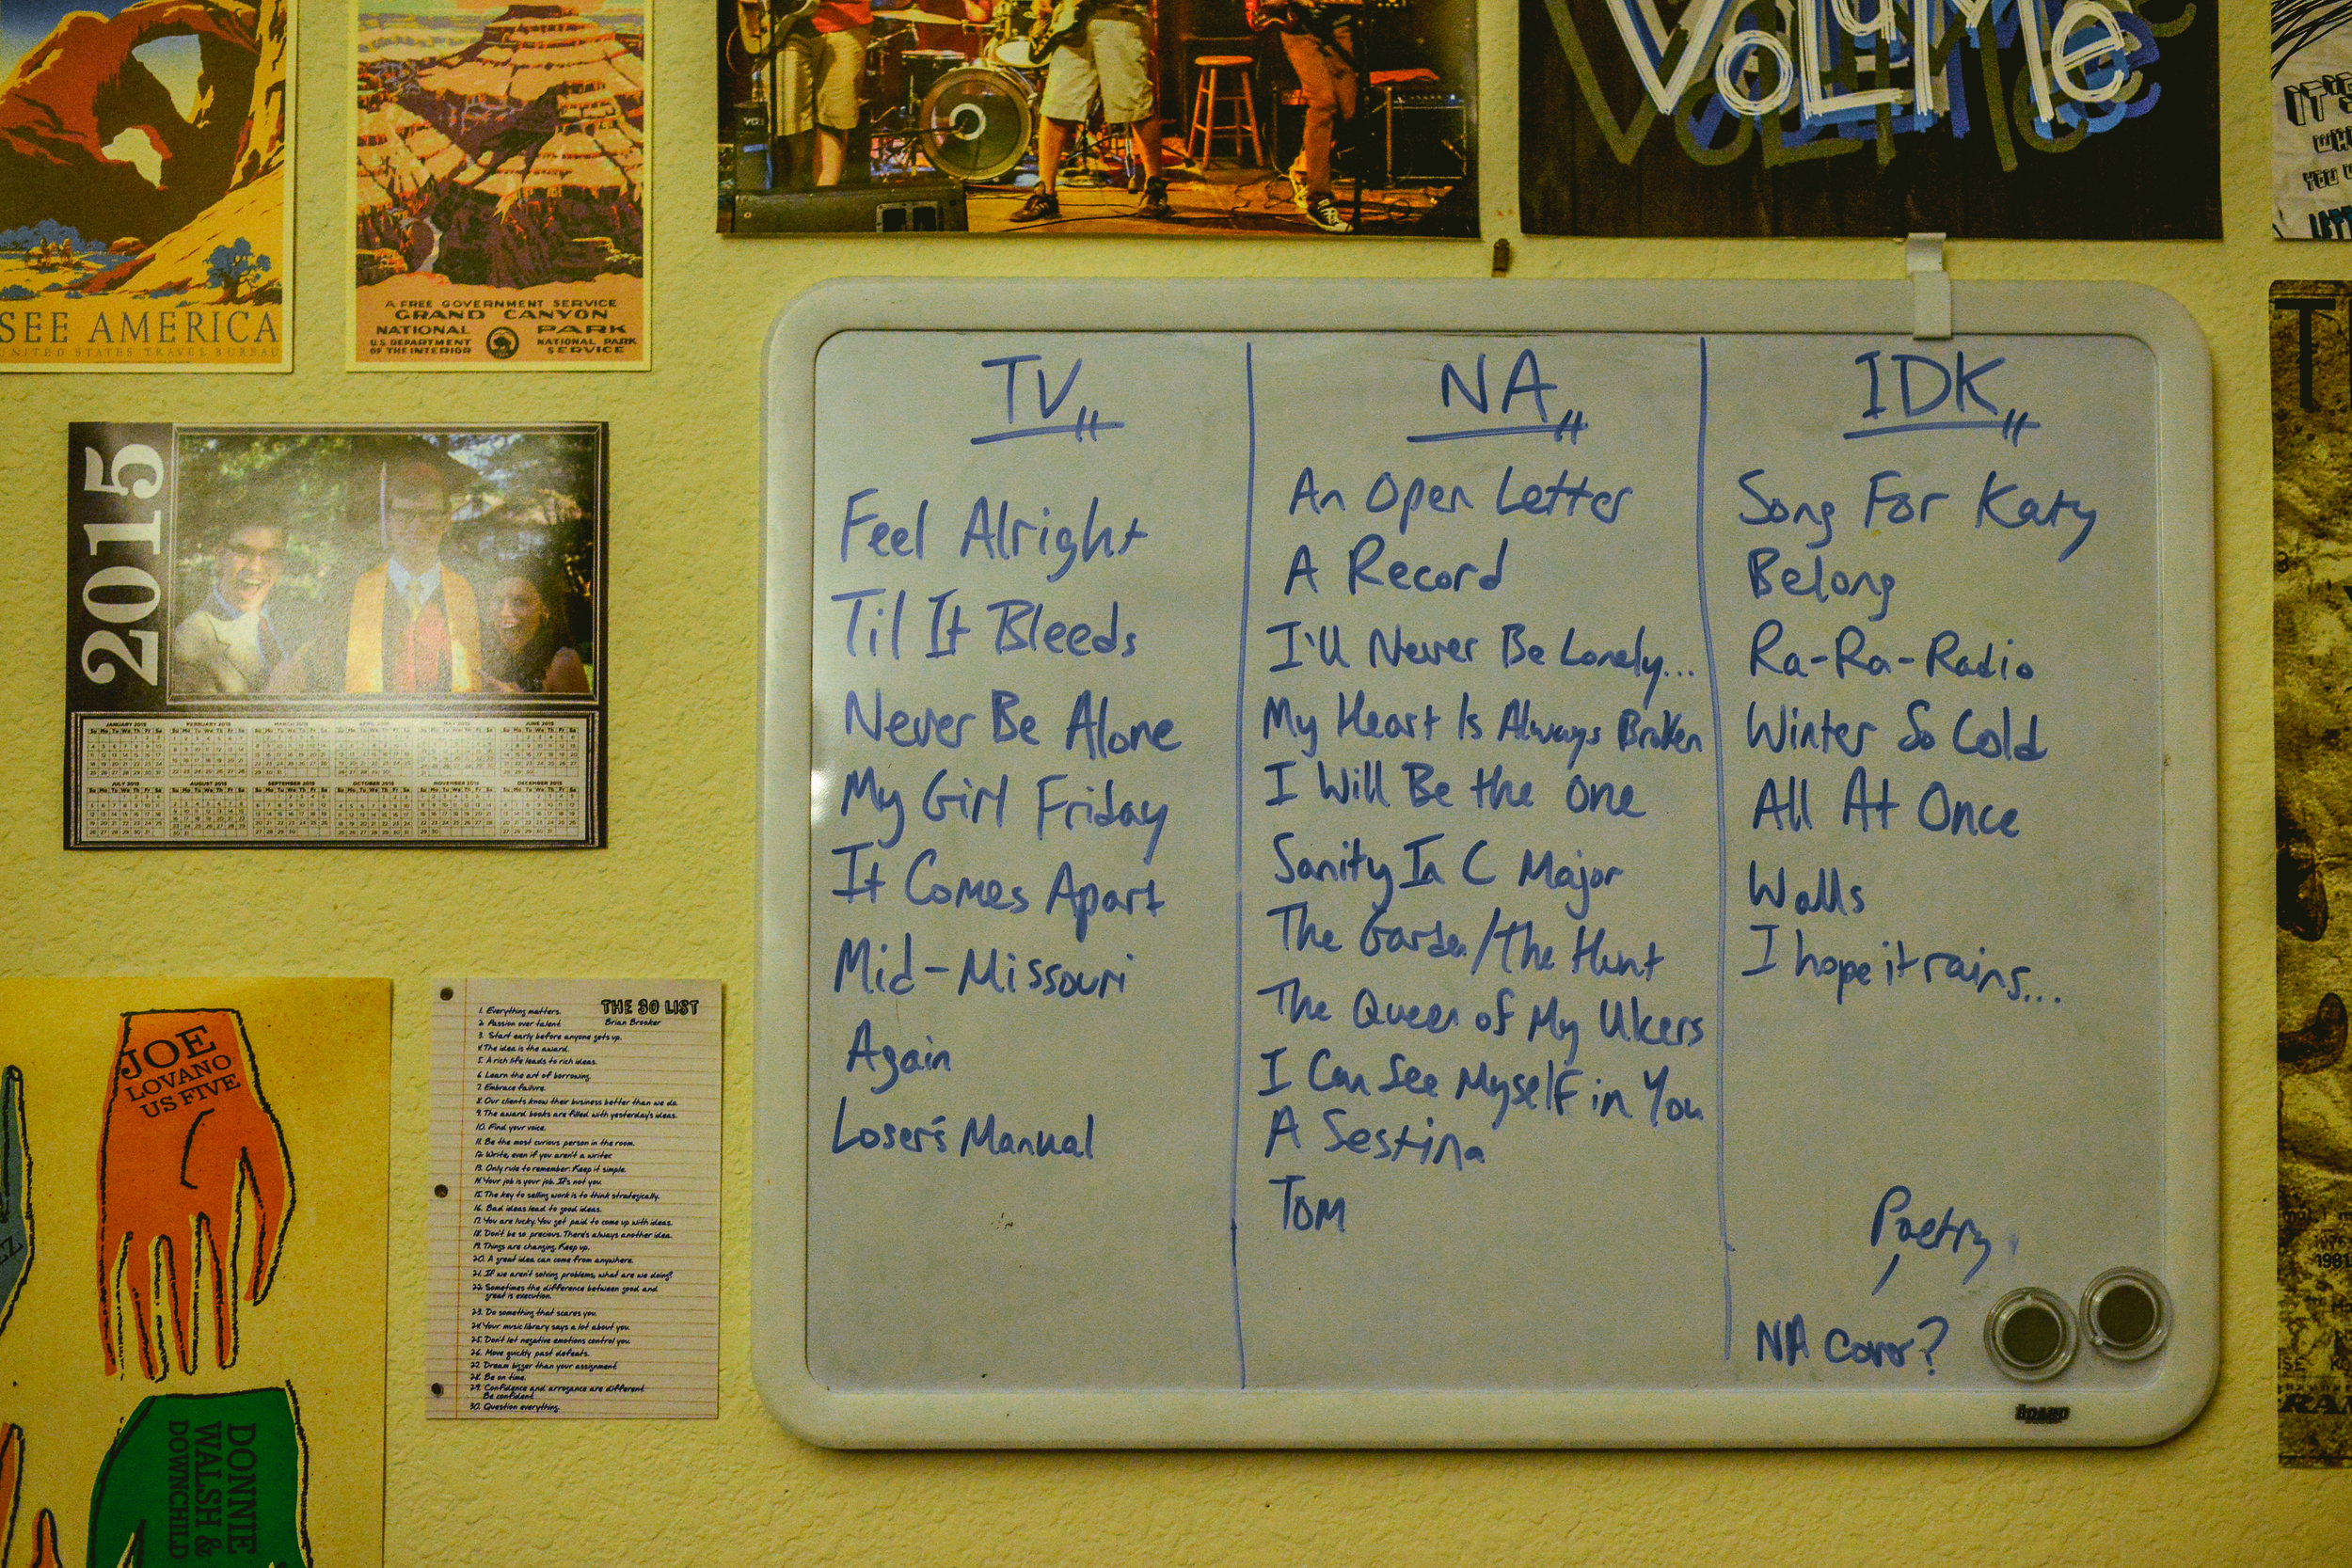 SEE AMERICA
UNITED STATES TRAVEL BUREAU
A FREE GOVERNMENT SERVICE
GRAND CANYON
NATIONAL PARK
U.S. DEPARTMENT OF THE INTERIOR
NATIONAL PARK SERVICE
VOLUME
IT'S
YOU
2015
JANUARY 2015 FEBRUARY 2015 MARCH 2015 APRIL 2015 MAY 2015 JUNE 2015
JULY 2015 AUGUST 2015 SEPTEMBER 2015 OCTOBER 2015 NOVEMBER 2015 DECEMBER 2015
TV
Feel Alright
Til It Bleeds
Never Be Alone
My Girl Friday
It Comes Apart
Mid-Missouri
Again
Loser's Manual
NA
An Open Letter
A Record
I'll Never Be Lonely...
My Heart Is Always Broken
I Will Be the One
Sanity In C Major
The Garden/The Hunt
The Queen of My Ulcers
I Can See Myself in You
A Sestina
TOM
IDK
Song For Katy
Belong
Ra-Ra-Radio
Winter So Cold
All At Once
Walls
I hope it rains...
Poetry
NA Cover?
JOE
LOVANO
US FIVE
DONNIE
WALSH &
DOWNCHILD
THE 30 LIST
Brian Brooker
1. Everything matters.
2. Passion over talent
3. Start early before anyone gets up.
4. The idea is the award.
5. A rich life leads to rich ideas.
6. Learn the art of borrowing.
7. Embrace failure.
8. Our clients know their business better than we do.
9. The award books are filled with yesterday's ideas.
10. Find your voice.
11. Be the most curious person in the room.
12. Write, even if you aren't a writer.
13. Only rule to remember: Keep it simple.
14. Your job is your job. It's not you.
15. The key to selling work is to think strategically.
16. Bad ideas lead to good ideas.
17. You are lucky. You get paid to come up with ideas.
18. Don't be so precious. There's always another idea.
19. Things are changing. Keep up.
20. A great idea can come from anywhere.
21. If we aren't solving problems, what are we doing?
22. Sometimes the difference between good and
great is execution.
23. Do something that scares you.
24. Your music library says a lot about you.
25. Don't let negative emotions control you.
26. Move quickly past defeats.
27. Dream bigger than your assignment
28. Be on time.
29. Confidence and arrogance are different.
Be confident.
30. Question everything.